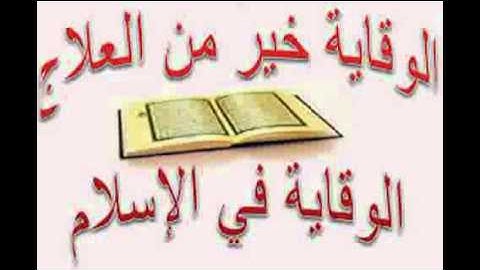 الوقاية خير من العلاج
الوقاية في الإسلام